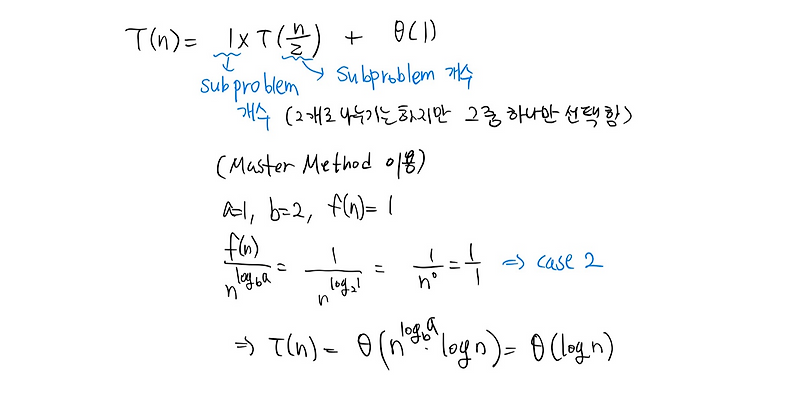 T(n) = 1 × T(n/2) + θ(1)
subproblem 개수
Subproblem 개수
(2개로 나누기는하지만 그중 하나만 선택함)
(Master Method 이용)
a=1, b=2, f(n)=1
f(n)/n^(log_b a) = 1/n^(log_2 1) = 1/n^0 = 1/1 ⇒ case 2
⇒ T(n) = θ(n^(log_b a) · log n) = θ(log n)